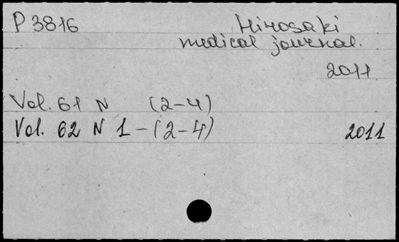 P 3816 Hirosaki
medical journal.
2011
Vol. 61 N (2-4)
Vol. 62 N 1-(2-4) 2011